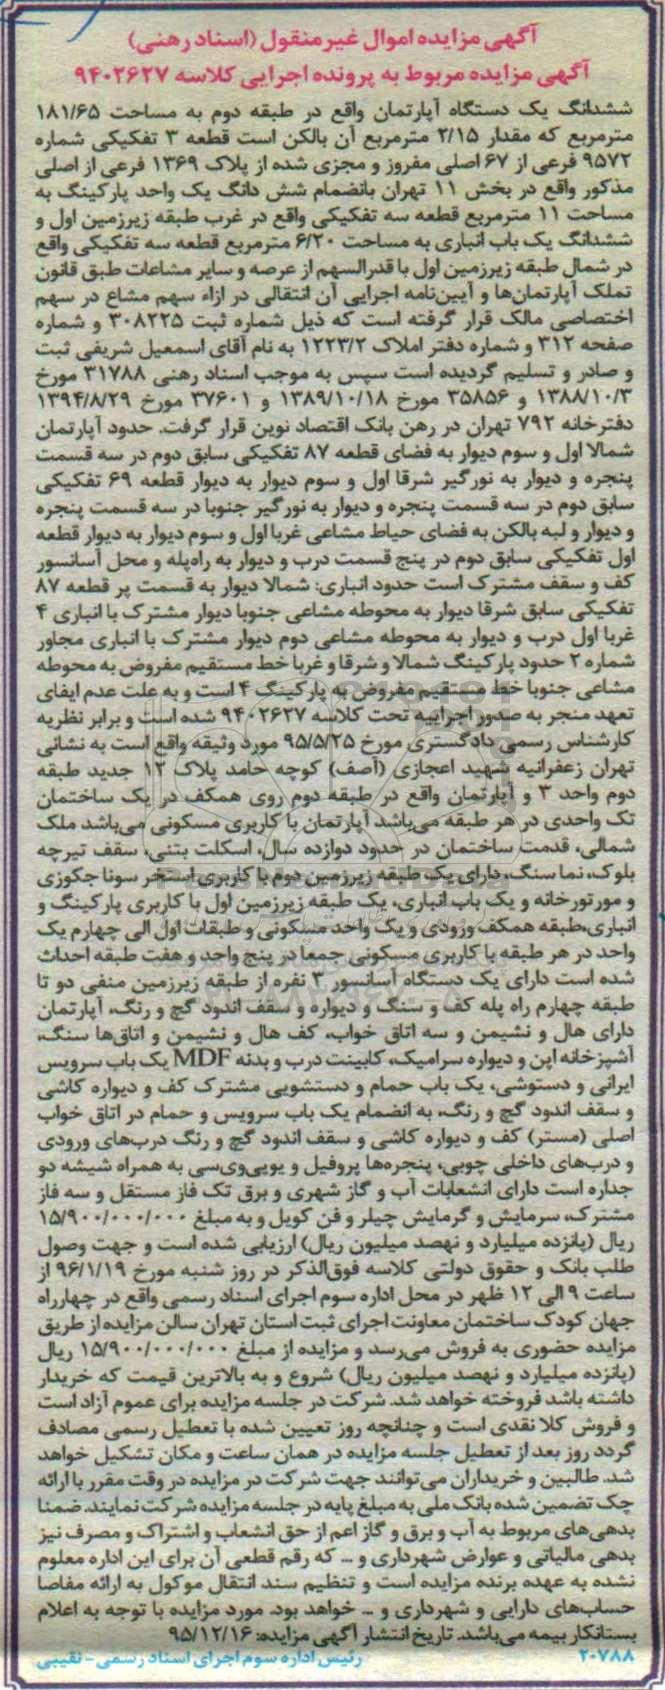 آگهی مزایده اموال غیر منقول (اسناد رهنی)
آگهی مزایده مربوط به پرونده اجرایی کلاسه ۹۴۰۲۶۲۷
ششدانگ یک دستگاه آپارتمان واقع در طبقه دوم به مساحت ۱۸۱/۶۵
مترمربع که مقدار ۲/۱۵ مترمربع آن بالکن است قطعه ۳ تفکیکی شماره
۹۵۷۲ فرعی از ۶۷ اصلی مفروز و مجزی شده از پلاک ۱۳۶۹ فرعی از اصلی
مذکور واقع در بخش ۱۱ تهران بانضمام شش دانگ یک واحد پارکینگ به
مساحت ۱۱ مترمربع قطعه سه تفکیکی واقع در غرب طبقه زیرزمین اول و
ششدانگ یک باب انباری به مساحت ۶/۲۰ مترمربع قطعه سه تفکیکی واقع
در شمال طبقه زیرزمین اول با قدرالسهم از عرصه و سایر مشاعات طبق قانون
تملک آپارتمان‌ها و آیین‌نامه اجرایی آن انتقالی در ازاء سهم مشاع در سهم
اختصاصی مالک قرار گرفته است که ذیل شماره ثبت ۳۰۸۲۲۵ و شماره
صفحه ۳۱۲ و شماره دفتر املاک ۱۲۲۳/۲ به نام آقای اسمعیل شریفی ثبت
و صادر و تسلیم گردیده است سپس به موجب اسناد رهنی ۳۱۷۸۸ مورخ
۱۳۸۸/۱۰/۳ و ۳۵۸۵۶ مورخ ۱۳۸۹/۱۰/۱۸ و ۳۷۶۰۱ مورخ ۱۳۹۴/۸/۲۹
دفترخانه ۷۹۲ تهران در رهن بانک اقتصاد نوین قرار گرفت. حدود آپارتمان
شمالا اول و سوم دیوار به فضای قطعه ۸۷ تفکیکی سابق دوم در سه قسمت
پنجره و دیوار به نورگیر شرقا اول و سوم دیوار به دیوار قطعه ۶۹ تفکیکی
سابق دوم در سه قسمت پنجره و دیوار به نورگیر جنوبا در سه قسمت پنجره
و دیوار و لبه بالکن به فضای حیاط مشاعی غربا اول و سوم دیوار به دیوار قطعه
اول تفکیکی سابق دوم در پنج قسمت درب و دیوار به راه‌پله و محل آسانسور
کف و سقف مشترک است حدود انباری: شمالا دیوار به قسمت پر قطعه ۸۷
تفکیکی سابق شرقا دیوار به محوطه مشاعی جنوبا دیوار مشترک با انباری ۴
غربا اول درب و دیوار به محوطه مشاعی دوم دیوار مشترک با انباری مجاور
شماره ۲ حدود پارکینگ شمالا و شرقا و غربا خط مستقیم مفروض به محوطه
مشاعی جنوبا خط مستقیم مفروض به پارکینگ ۴ است و به علت عدم ایفای
تعهد منجر به صدور اجراییه تحت کلاسه ۹۴۰۲۶۲۷ شده است و برابر نظریه
کارشناس رسمی دادگستری مورخ ۹۵/۵/۲۵ مورد وثیقه واقع است به نشانی
تهران زعفرانیه شهید اعجازی (آصف) کوچه حامد پلاک ۱۲ جدید طبقه
دوم واحد ۳ و آپارتمان واقع در طبقه دوم روی همکف در یک ساختمان
تک واحدی در هر طبقه می‌باشد آپارتمان با کاربری مسکونی می‌باشد ملک
شمالی، قدمت ساختمان در حدود دوازده سال، اسکلت بتنی، سقف تیرچه
بلوک، نما سنگ، دارای یک طبقه زیرزمین دوم با کاربری استخر سونا جکوزی
و مورتورخانه و یک باب انباری، یک طبقه زیرزمین اول با کاربری پارکینگ و
انباری، طبقه همکف ورودی و یک واحد مسکونی و طبقات اول الی چهارم یک
واحد در هر طبقه با کاربری مسکونی جمعا در پنج واحد و هفت طبقه احداث
شده است دارای یک دستگاه آسانسور ۳ نفره از طبقه زیرزمین منفی دو تا
طبقه چهارم راه پله کف و سنگ و دیواره و سقف اندود گچ و رنگ، آپارتمان
دارای هال و نشیمن و سه اتاق خواب، کف هال و نشیمن و اتاق‌ها سنگ،
آشپزخانه اپن و دیواره سرامیک، کابینت درب و بدنه MDF یک باب سرویس
ایرانی و دستوشی، یک باب حمام و دستشویی مشترک کف و دیواره کاشی
و سقف اندود گچ و رنگ، به انضمام یک باب سرویس و حمام در اتاق خواب
اصلی (مستر) کف و دیواره کاشی و سقف اندود گچ و رنگ درب‌های ورودی
و درب‌های داخلی چوبی، پنجره‌ها پروفیل و یوپی‌وی‌سی به همراه شیشه دو
جداره است دارای انشعابات آب و گاز شهری و برق تک فاز مستقل و سه فاز
مشترک، سرمایش و گرمایش چیلر و فن کویل و به مبلغ ۱۵/۹۰۰/۰۰۰/۰۰۰
ریال (پانزده میلیارد و نهصد میلیون ریال) ارزیابی شده است و جهت وصول
طلب بانک و حقوق دولتی کلاسه فوق‌الذکر در روز شنبه مورخ ۹۶/۱/۱۹ از
ساعت ۹ الی ۱۲ ظهر در محل اداره سوم اجرای اسناد رسمی واقع در چهارراه
جهان کودک ساختمان معاونت اجرای ثبت استان تهران سالن مزایده از طریق
مزایده حضوری به فروش می‌رسد و مزایده از مبلغ ۱۵/۹۰۰/۰۰۰/۰۰۰ ریال
(پانزده میلیارد و نهصد میلیون ریال) شروع و به بالاترین قیمت که خریدار
داشته باشد فروخته خواهد شد. شرکت در جلسه مزایده برای عموم آزاد است
و فروش کلا نقدی است و چنانچه روز تعیین شده با تعطیل رسمی مصادف
گردد روز بعد از تعطیل جلسه مزایده در همان ساعت و مکان تشکیل خواهد
شد. طالبین و خریداران می‌توانند جهت شرکت در مزایده در وقت مقرر با ارائه
چک تضمین شده بانک ملی به مبلغ پایه در جلسه مزایده شرکت نمایند. ضمنا
بدهی‌های مربوط به آب و برق و گاز اعم از حق انشعاب و اشتراک و مصرف نیز
بدهی مالیاتی و عوارض شهرداری و ... که رقم قطعی آن برای این اداره معلوم
نشده به عهده برنده مزایده است و تنظیم سند انتقال موکول به ارائه مفاصا
حساب‌های دارایی و شهرداری و ... خواهد بود. مورد مزایده با توجه به اعلام
بستانکار بیمه می‌باشد. تاریخ انتشار آگهی مزایده: ۹۵/۱۲/۱۶
۲۰۷۸۸ رئیس اداره سوم اجرای اسناد رسمی - نقیبی